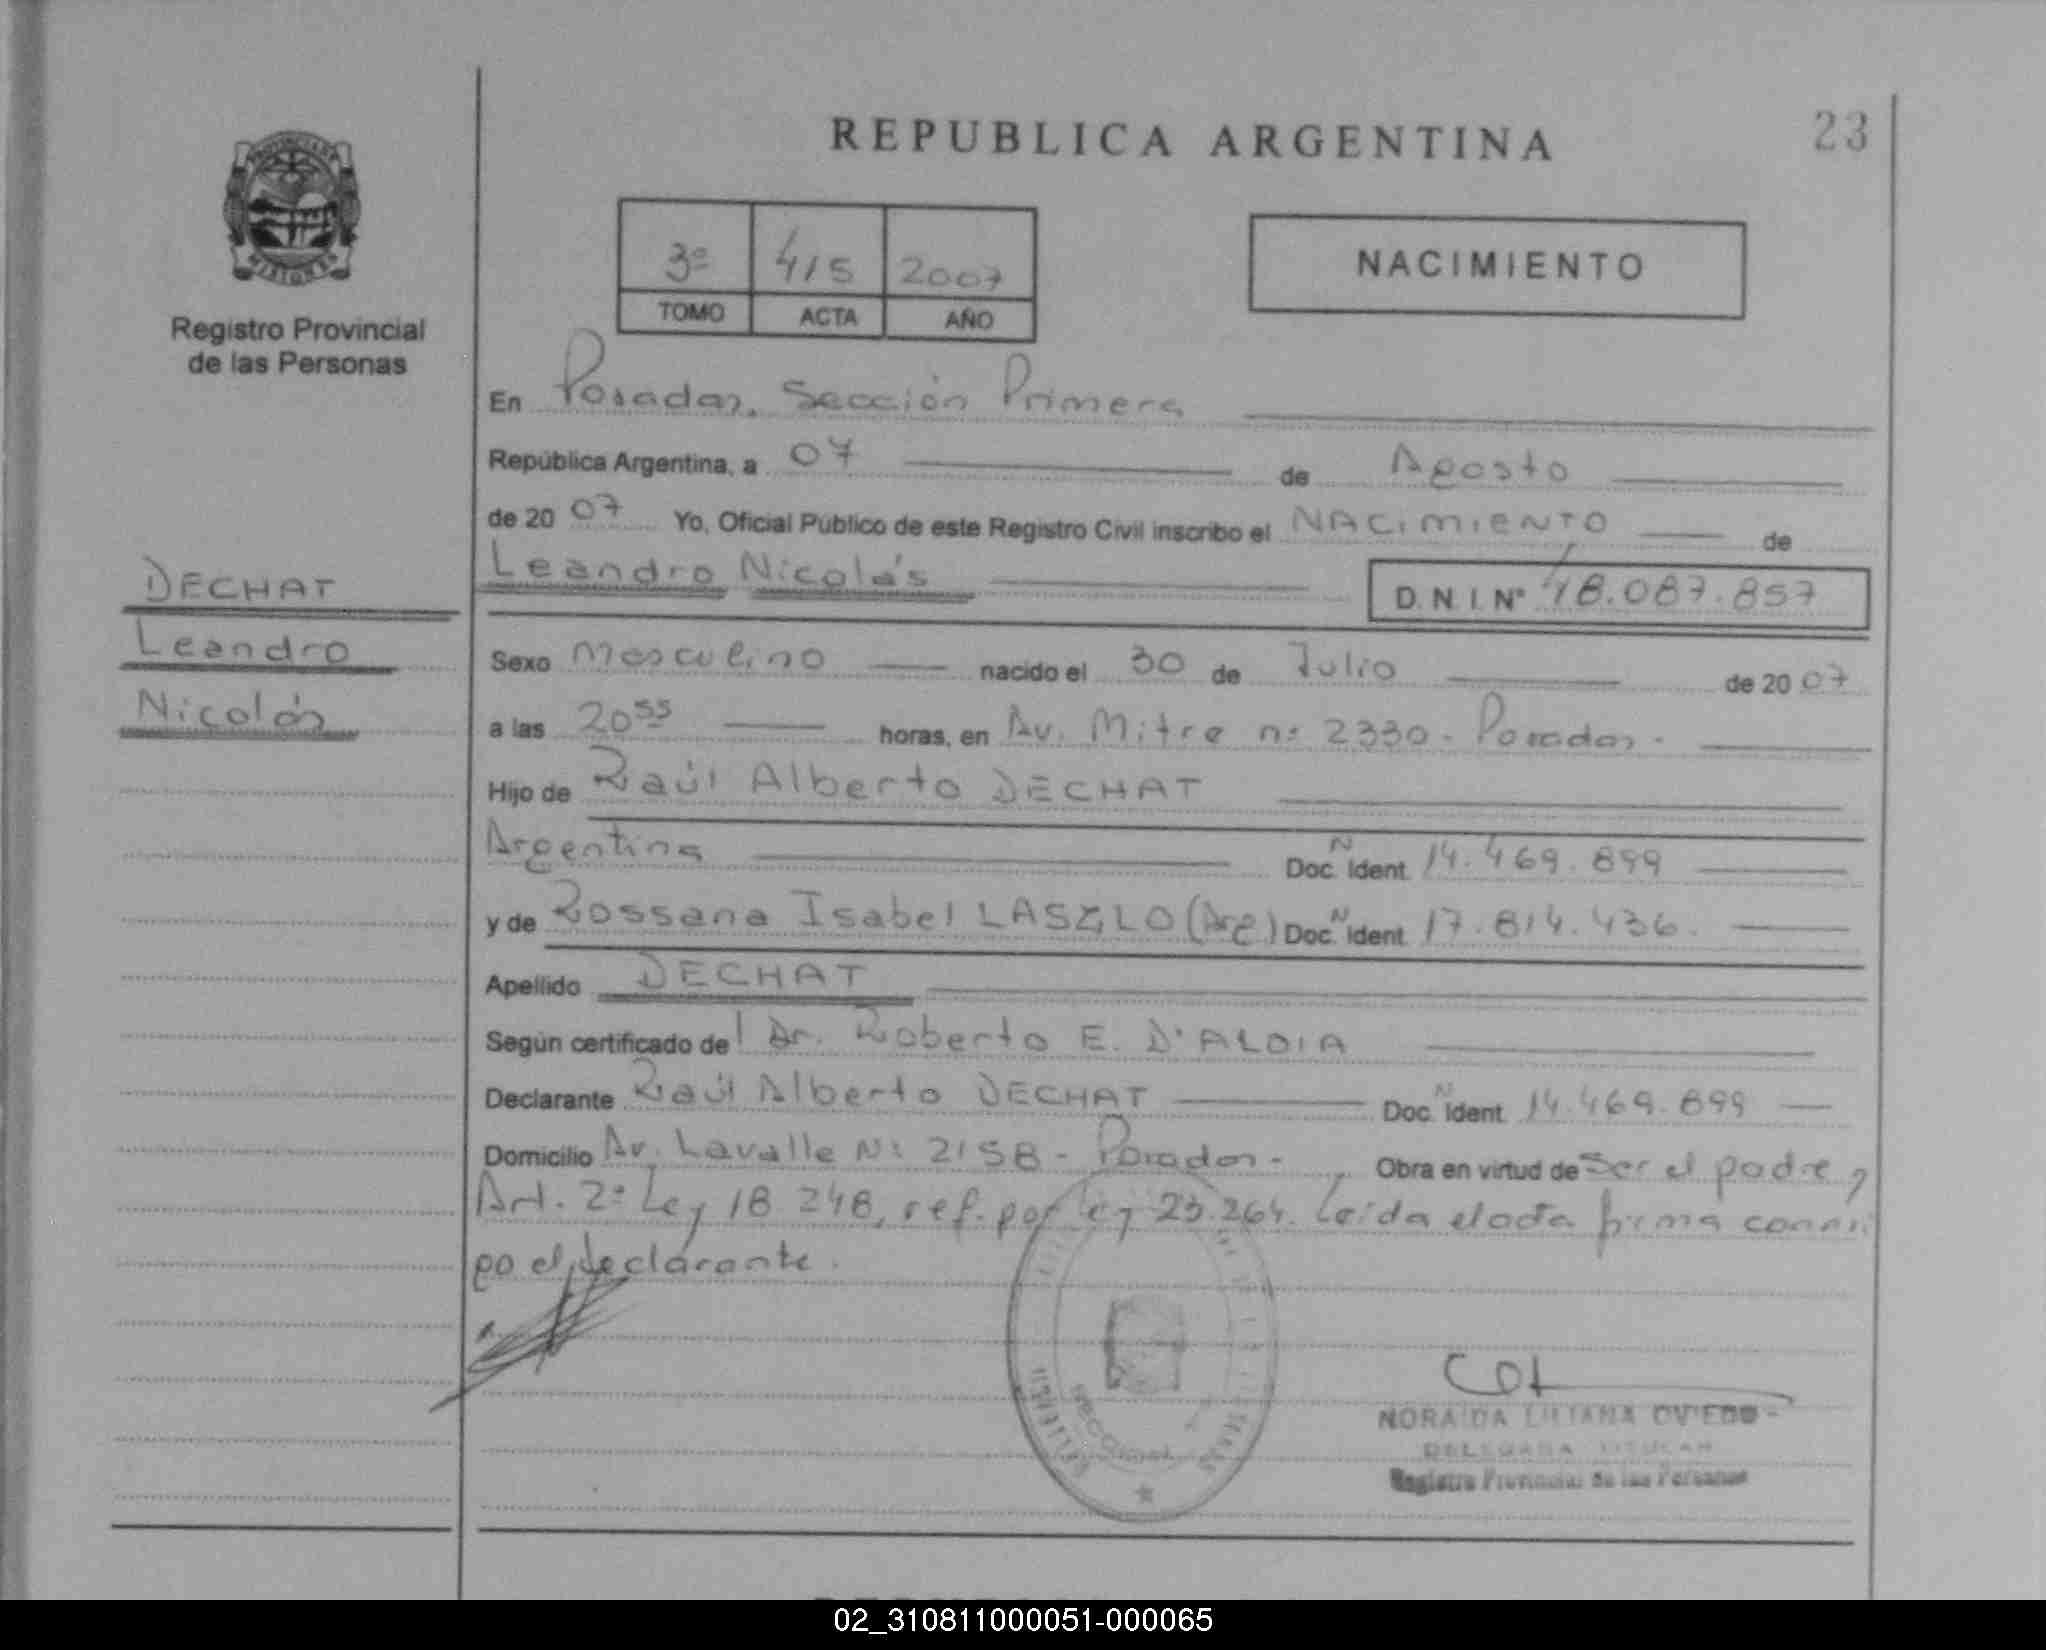 REPUBLICA ARGENTINA
23
PROVINCIA DE MISIONES
Registro Provincial
de las Personas
3º 415 2007
TOMO ACTA AÑO
NACIMIENTO
En Posadas, Sección Primera
República Argentina, a 07 de Agosto
de 2007 Yo, Oficial Público de este Registro Civil inscribo el NACIMIENTO de
Leandro Nicolás D.N.I. Nº 48.087.857
DECHAT
Leandro
Nicolás
Sexo Masculino nacido el 30 de Julio de 2007
a las 20⁵⁵ horas, en Av. Mitre nº 2330 - Posadas -
Hijo de Raúl Alberto DECHAT
Argentina Doc. N Ident. 14.469.899
y de Rossana Isabel LASZLO (Arg) Doc. N Ident. 17.814.436.
Apellido DECHAT
Según certificado del Dr. Roberto E. D'ALOIA
Declarante Raúl Alberto DECHAT Doc. N Ident. 14.469.899
Domicilio Av. Lavalle Nº 2158 - Posadas - Obra en virtud de Ser el padre y
Art. 2º Ley 18.248, ref. por ley 23.264. Leída el acta firma conmi
go el declarante.
NORAIDA LILIANA OVIEDO
DELEGADA TITULAR
Registro Provincial de las Personas
02_310811000051-000065